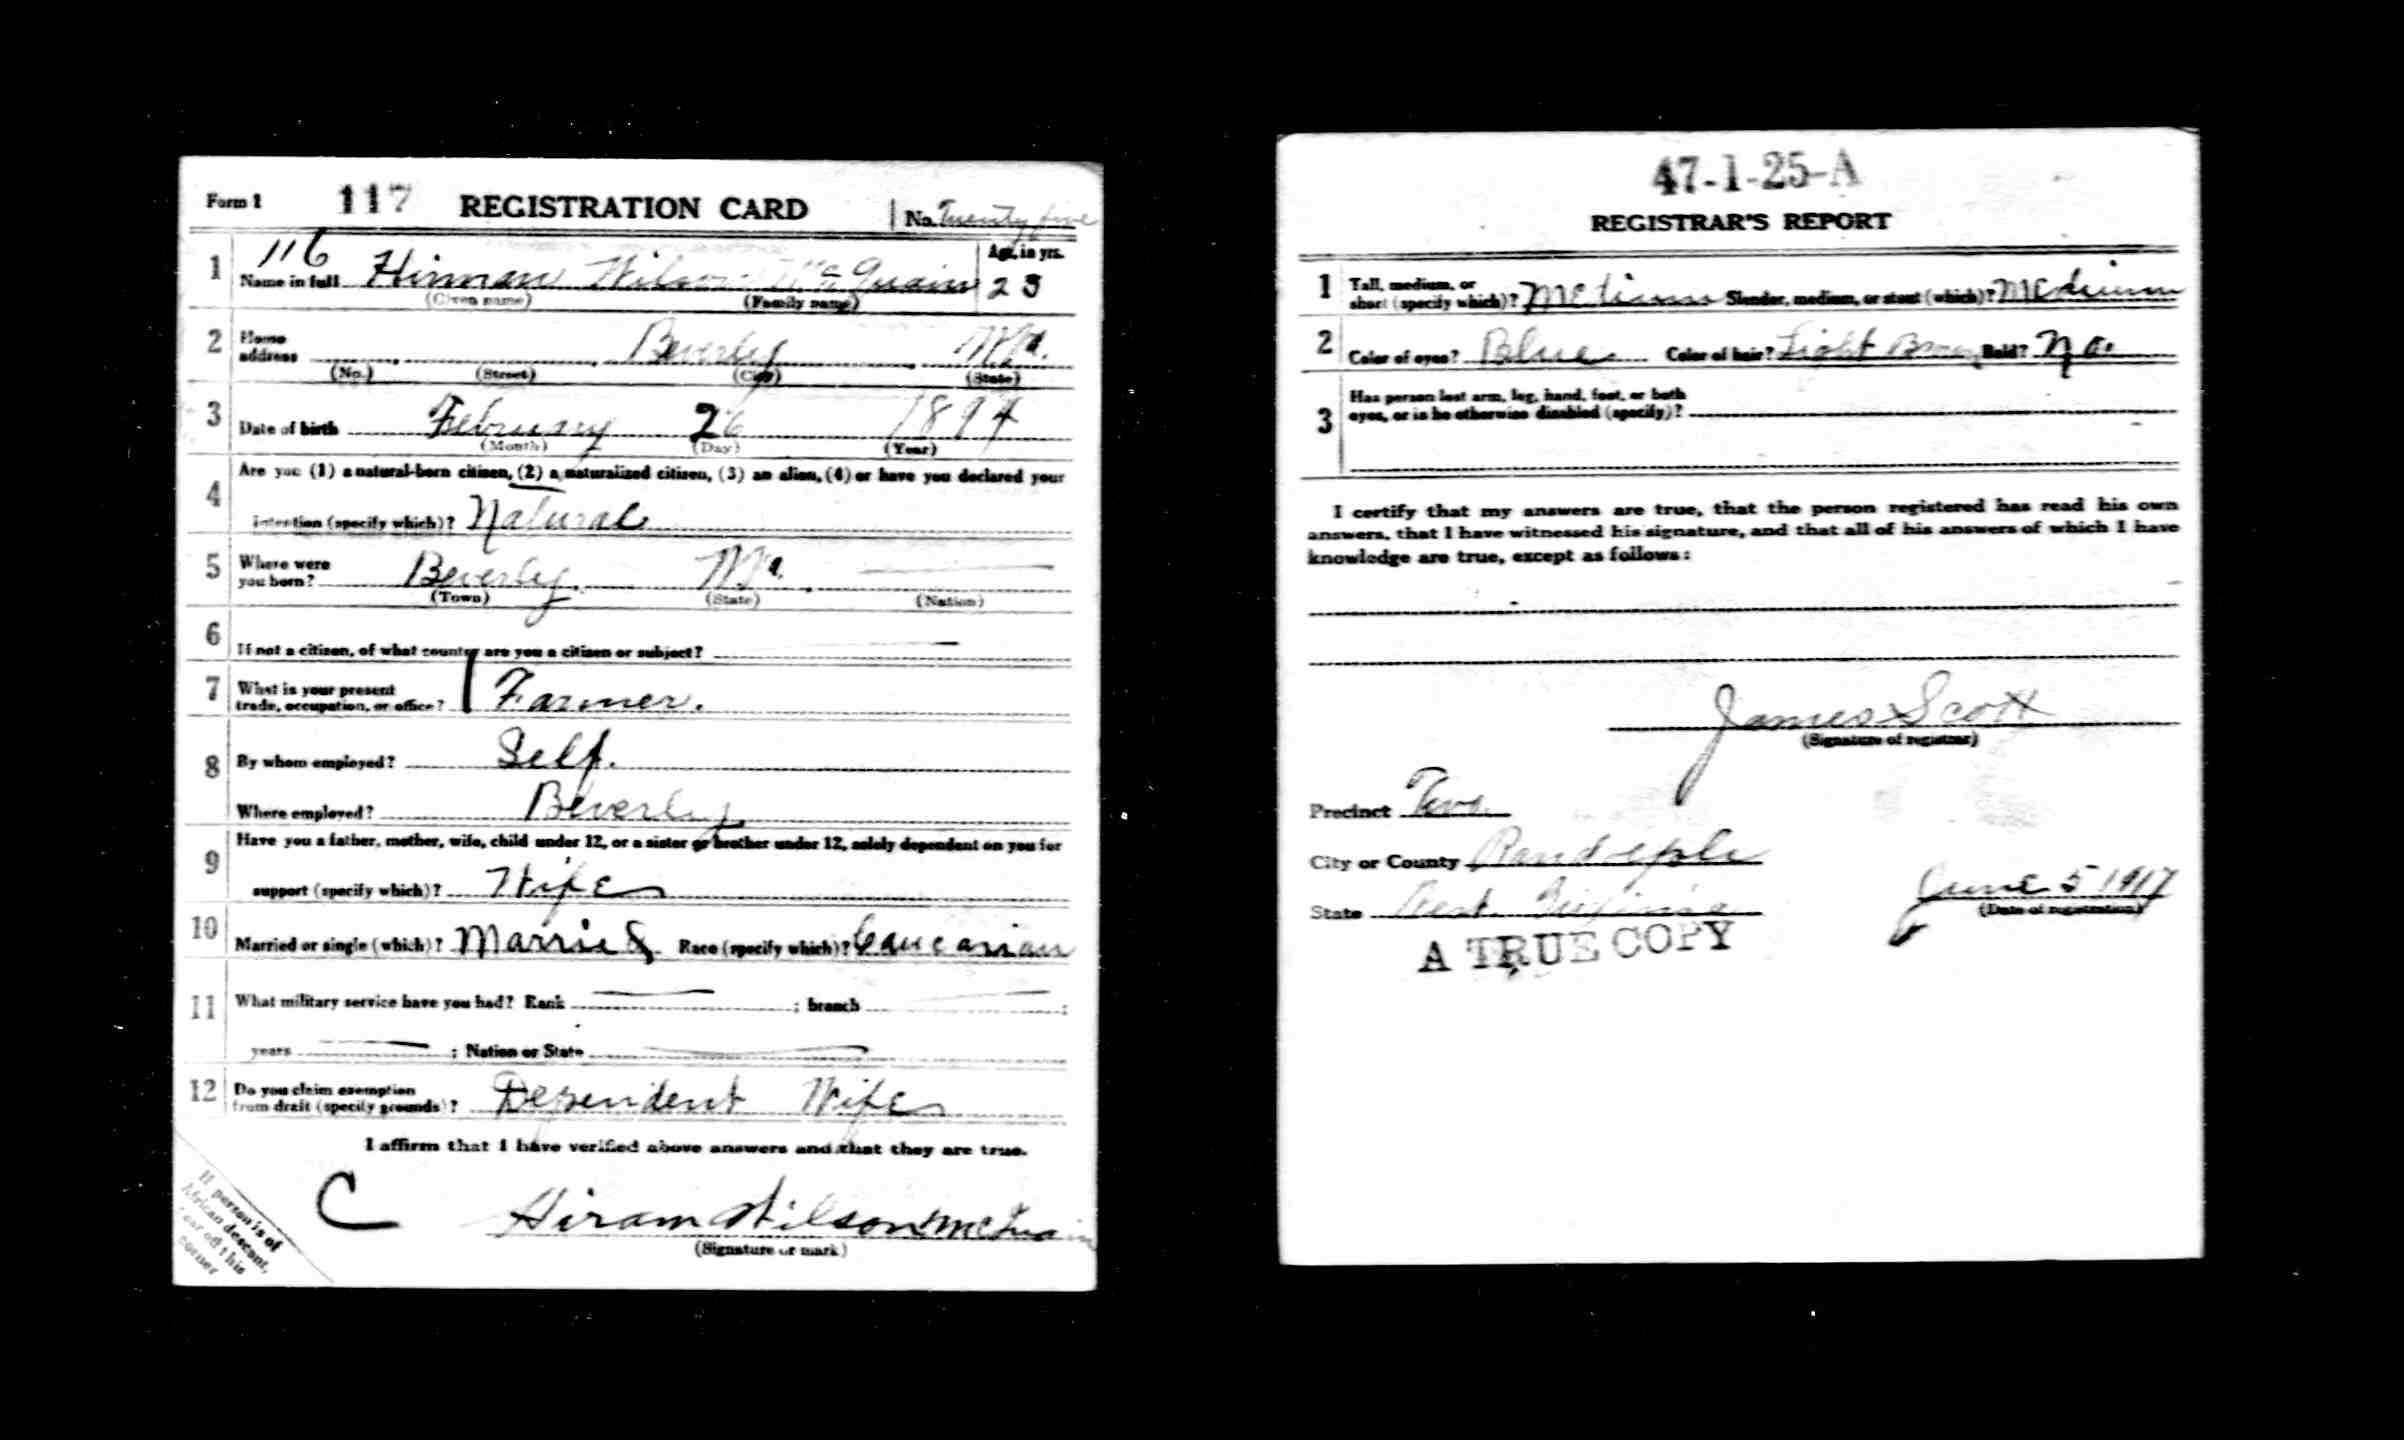 Form 1 117 REGISTRATION CARD No. Twenty five
1 116 Name in full Hirman Wilson McQuain Age, in yrs. 23
(Given name) (Family name)
2 Home address Beverly W Va.
(No.) (Street) (City) (State)
3 Date of birth February 26 1894
(Month) (Day) (Year)
4 Are you (1) a natural-born citizen, (2) a naturalized citizen, (3) an alien, (4) or have you declared your
intention (specify which)? Natural
5 Where were you born? Beverly W Va.
(Town) (State) (Nation)
6 If not a citizen, of what country are you a citizen or subject?
7 What is your present
trade, occupation, or office? Farmer.
8 By whom employed? Self.
Where employed? Beverly
9 Have you a father, mother, wife, child under 12, or a sister or brother under 12, solely dependent on you for
support (specify which)? Wife
10 Married or single (which)? Married Race (specify which)? Caucasian
11 What military service have you had? Rank ; branch ;
years ; Nation or State
12 Do you claim exemption
from draft (specify grounds)? Dependent Wife
I affirm that I have verified above answers and that they are true.
C Hiram Wilson McQuain
(Signature or mark)
If person is of
African descent,
tear off this
corner
47-1-25-A
REGISTRAR'S REPORT
1 Tall, medium, or
short (specify which)? Medium Slender, medium, or stout (which)? Medium
2 Color of eyes? Blue Color of hair? Light Brown Bald? No.
3 Has person lost arm, leg, hand, foot, or both
eyes, or is he otherwise disabled (specify)?
I certify that my answers are true, that the person registered has read his own
answers, that I have witnessed his signature, and that all of his answers of which I have
knowledge are true, except as follows:
James Scott
(Signature of registrar)
Precinct Two.
City or County Randolph
State West Virginia June 5 1917
(Date of registration)
A TRUE COPY